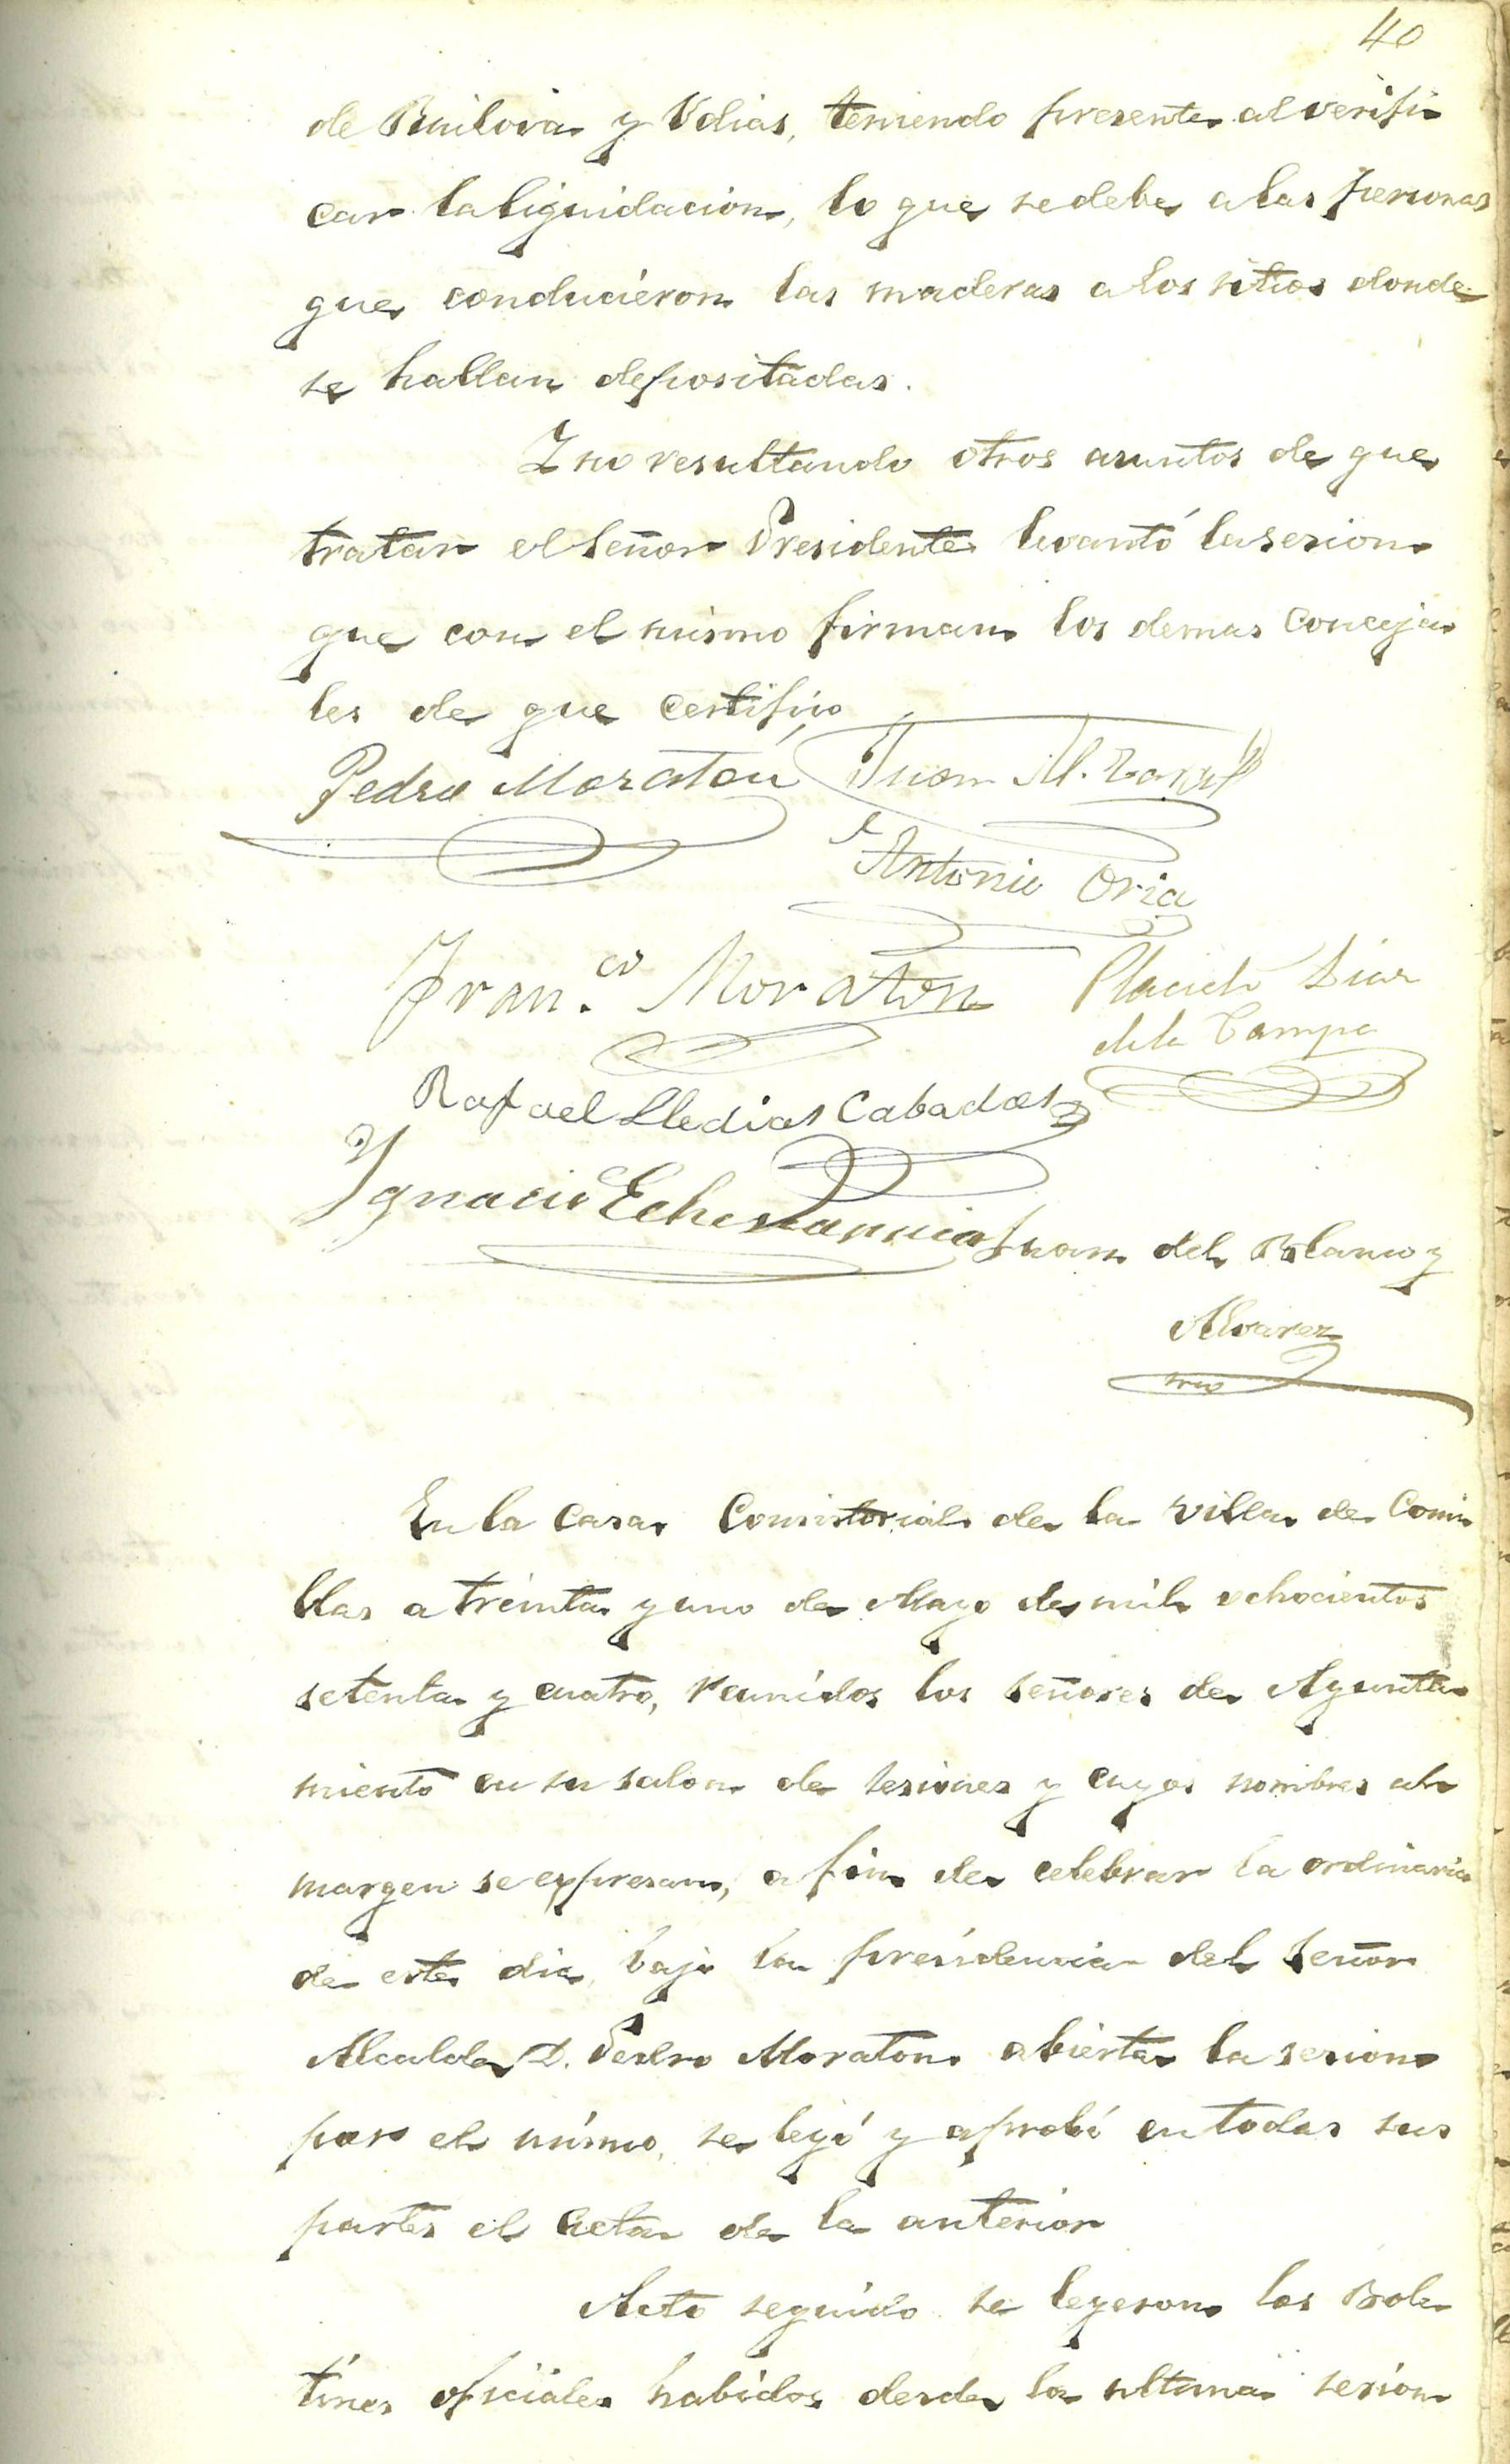 40
de Ruiloba y Udias, teniendo presente al verifi
car la liquidacion, lo que se debe a las personas
que conduciéron las maderas a los sitios donde
se hallan depositadas.
Y no resultando otros asuntos de que
tratar el Señor Presidente levantó la sesion
que con el mismo firman los demas conceja
les de que certifico
Pedro Moratón Juan M.
Antonio Oria
Fran.co Moraton Placido Diaz
de la Campa
Rafael Lledias Cabadas
Ygnacio Echevarria Juan del Blanco y
Alvarez
srio
En la Casa Consistorial de la Villa de Comi
llas a treinta y uno de Mayo de mil ochocientos
setenta y cuatro, reunidos los Señores de Ayunta
miento en su salon de sesiones y cuyos nombres al
margen se expresan, a fin de celebrar la ordinaria
de este dia, bajo la presidencia del Señor
Alcalde D. Pedro Moraton abierta la sesion
por el mismo, se leyó y aprobó en todas sus
partes el acta de la anterior
Acto seguido se leyeron los Bole
tines oficiales habidos desde la ultima sesion